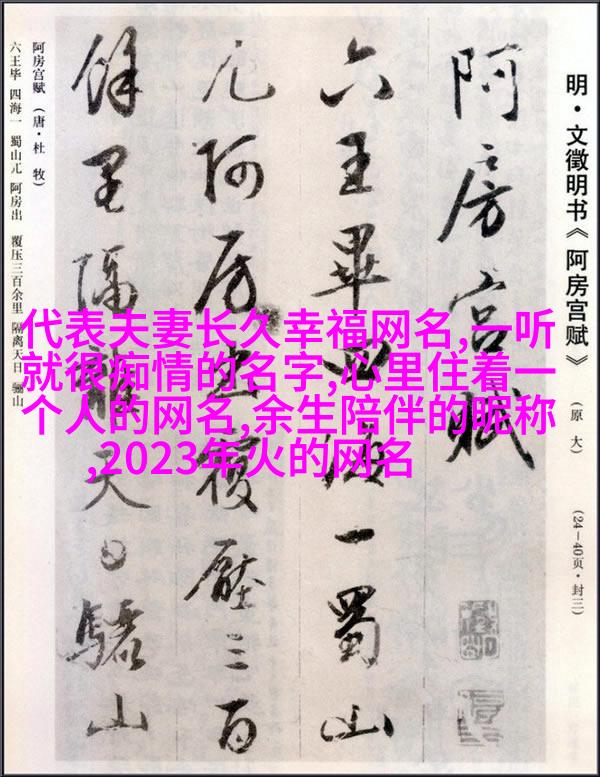 明·文徵明书《阿房宫赋》
（原大）
（24—40页·封三）
阿房宫賦
六王畢四海一蜀山
兀阿房出覆壓三百
餘里隔離天日驪山
阿房宫赋（唐·杜 牧）
六王毕 四海一 蜀山兀 阿房出 覆压三百余里 隔离天日 骊山
代表夫妻长久幸福网名,一听
就很痴情的名字,心里住着一
个人的网名,余生陪伴的昵称
,2023年火的网名